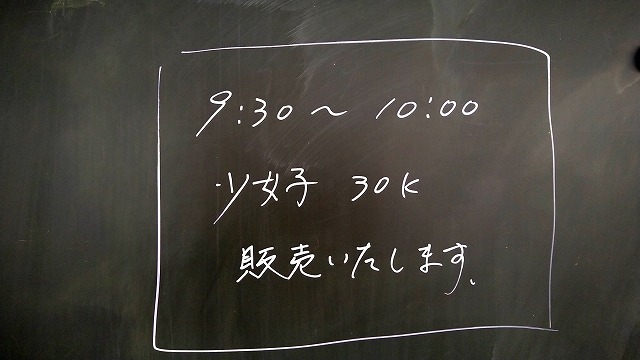 9:30～10:00
少女子 30K
販売いたします。